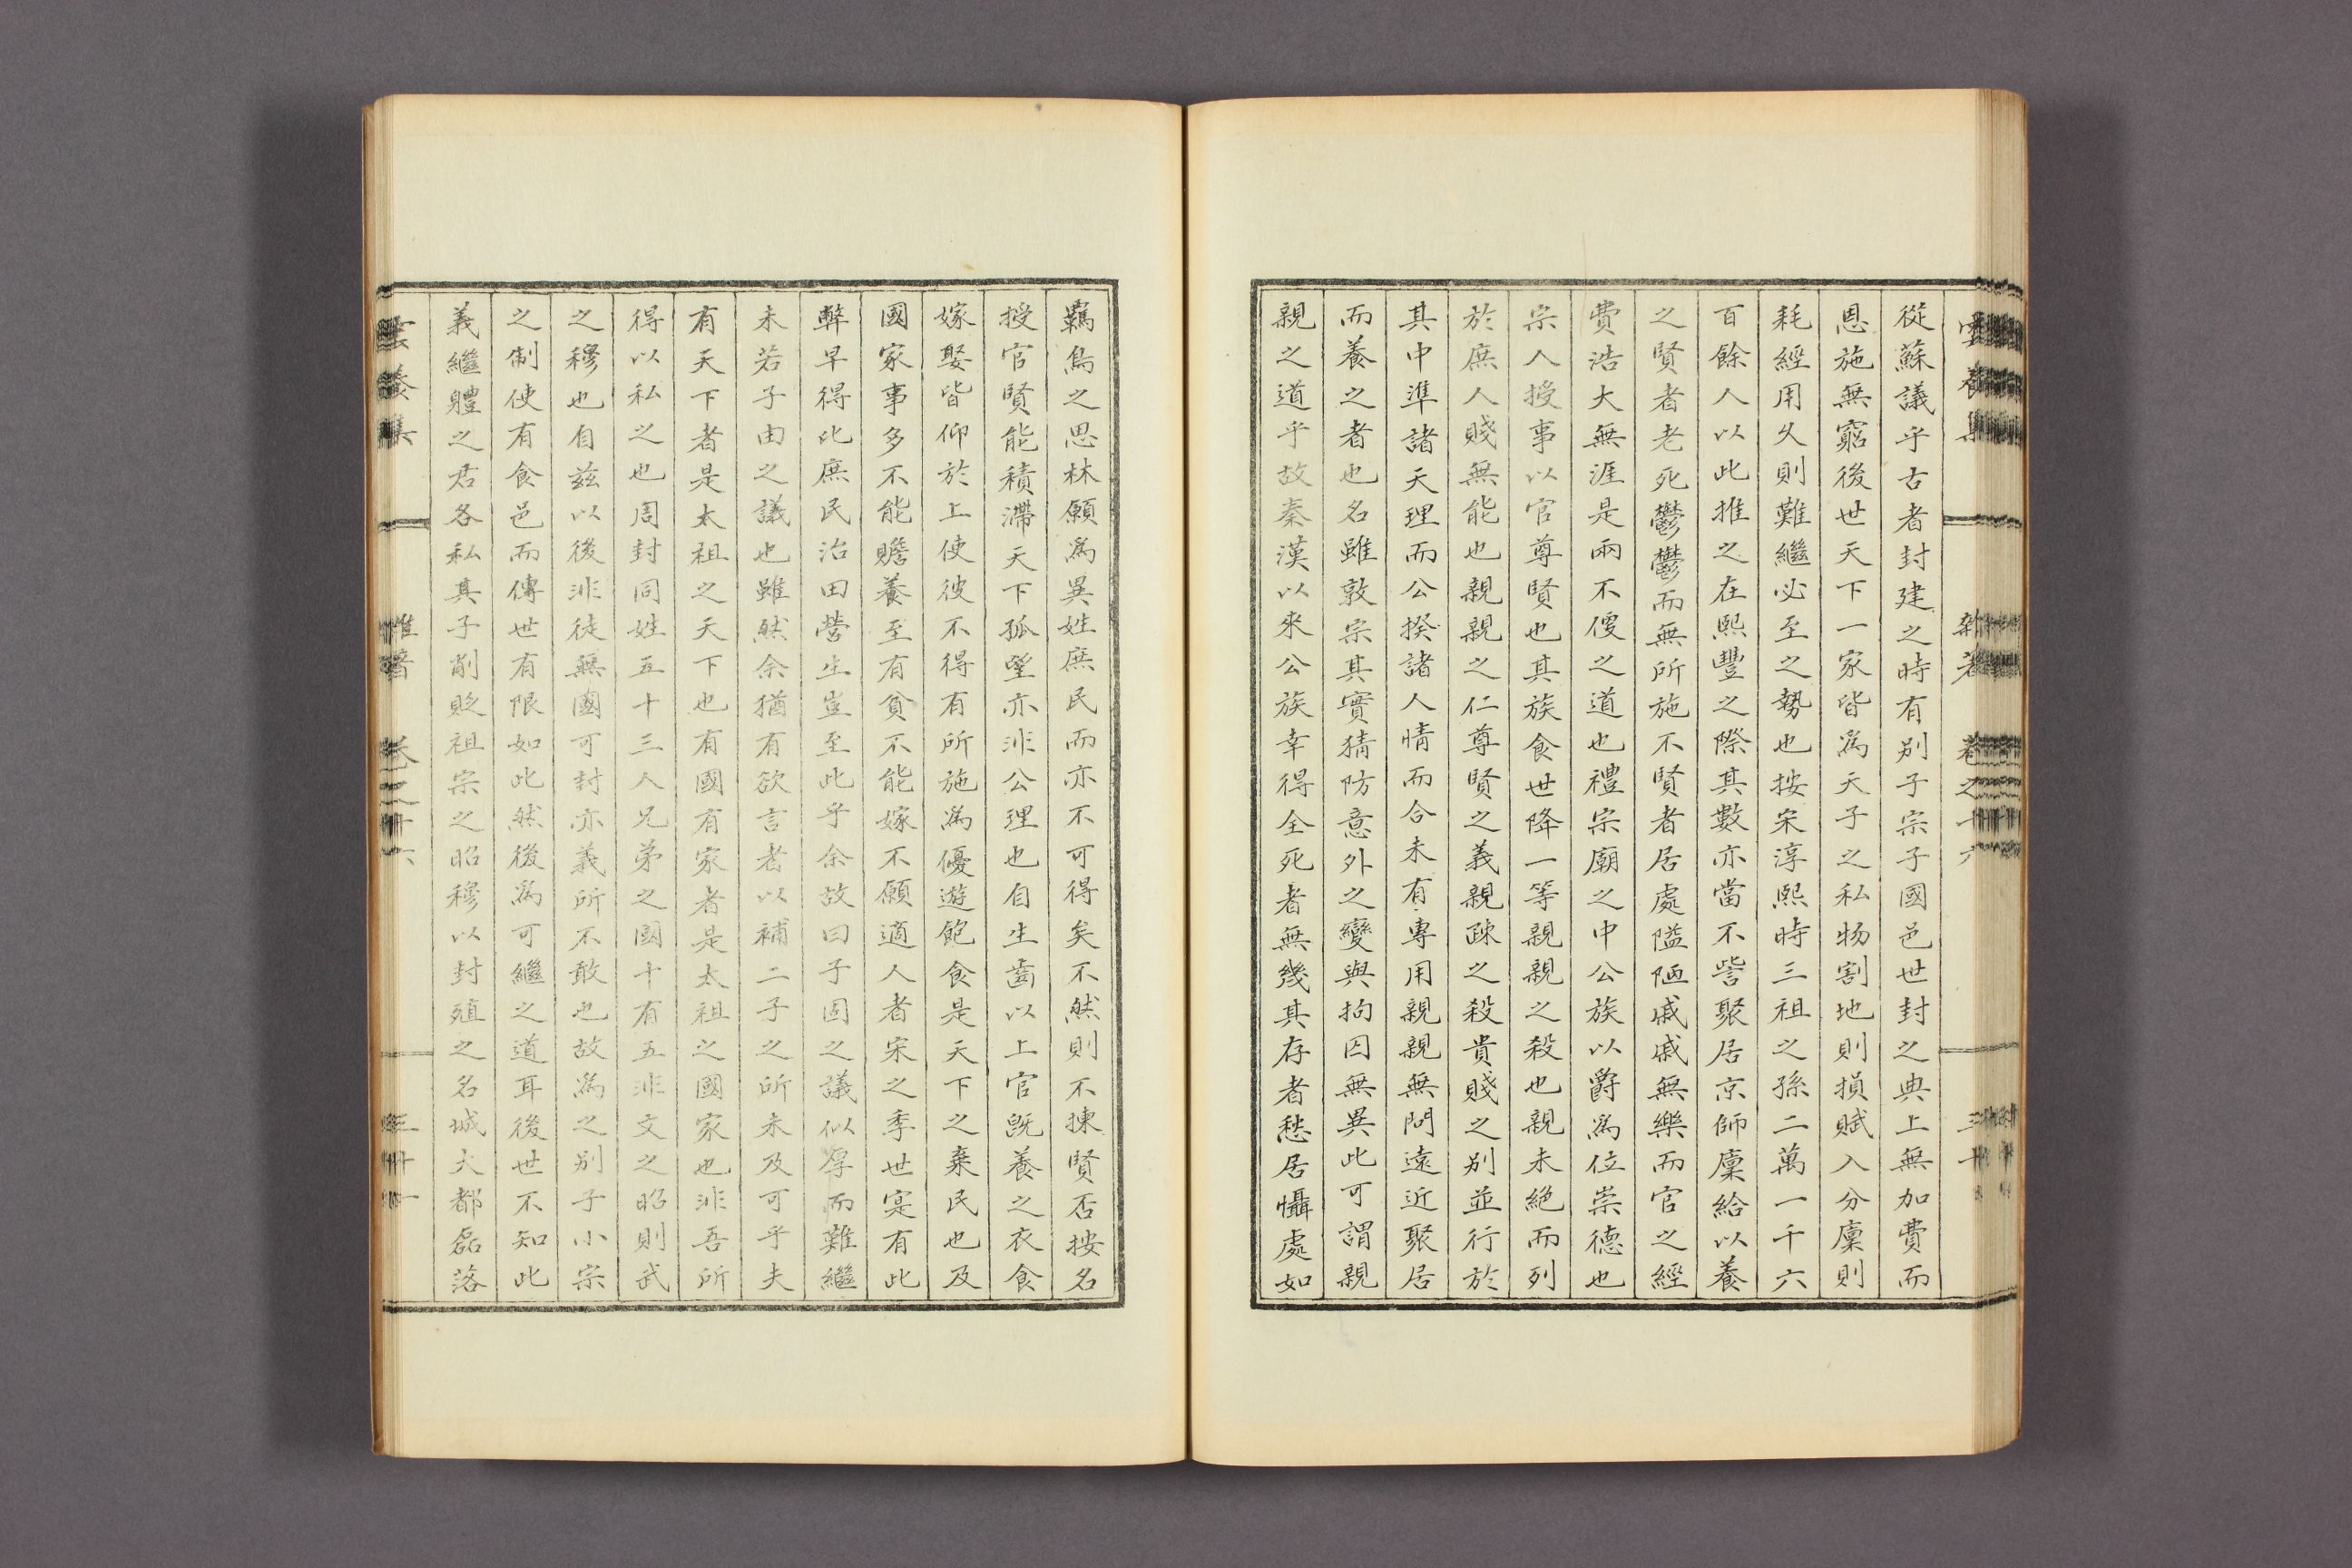 雲養集 雜著 卷之十六 三十
從蘇議乎古者封建之時有別子宗子國邑世封之典上無加費而
恩施無窮後世天下一家皆爲天子之私物割地則損賦入分廩則
耗經用久則難繼必至之勢也按宋淳熙時三祖之孫二萬一千六
百餘人以此推之在熙豐之際其數亦當不訾聚居京師廩給以養
之賢者老死鬱鬱而無所施不賢者居處隘陋戚戚無樂而官之經
費浩大無涯是兩不便之道也禮宗廟之中公族以爵爲位崇德也
宗人授事以官尊賢也其族食世降一等親親之殺也親未絕而列
於庶人賤無能也親親之仁尊賢之義親疎之殺貴賤之別並行於
其中準諸天理而公揆諸人情而合未有專用親親無問遠近聚居
而養之者也名雖敦宗其實猜防意外之變與拘囚無異此可謂親
親之道乎故秦漢以來公族幸得全死者無幾其存者愁居懾處如
羈鳥之思林願爲異姓庶民而亦不可得矣不然則不揀賢否按名
授官賢能積滯天下孤望亦非公理也自生齒以上官旣養之衣食
嫁娶皆仰於上使彼不得有所施爲優遊飽食是天下之棄民也及
國家事多不能贍養至有貧不能嫁不願適人者宋之季世寔有此
弊早得比庶民治田營生豈至此乎余故曰子固之議似厚而難繼
未若子由之議也雖然余猶有欲言者以補二子之所未及可乎夫
有天下者是太祖之天下也有國有家者是太祖之國家也非吾所
得以私之也周封同姓五十三人兄弟之國十有五非文之昭則武
之穆也自茲以後非徒無國可封亦義所不敢也故爲之別子小宗
之制使有食邑而傳世有限如此然後爲可繼之道耳後世不知此
義繼體之君各私其子削貶祖宗之昭穆以封殖之名城大都磊落
雲養集 雜著 卷之十六 三十一